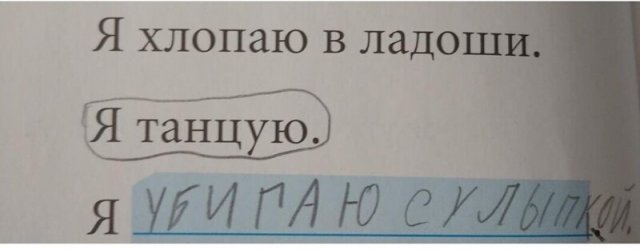 Я хлопаю в ладоши.
Я танцую.
Я УБИГАЮ С УЛЫПКОЙ.